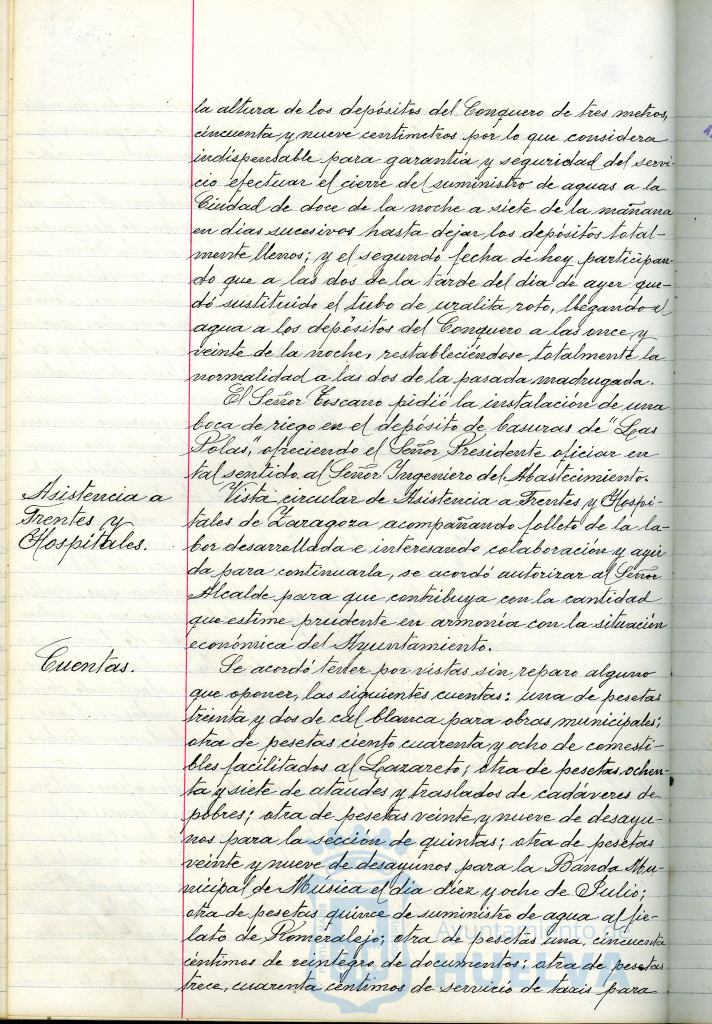 la altura de los depósitos del Conquero de tres metros,
cincuenta y nueve centimetros por lo que considera
indispensable para garantía y seguridad del servi-
cio efectuar el cierre del suministro de aguas a la
Ciudad de doce de la noche a siete de la mañana
en días sucesivos hasta dejar los depósitos total-
mente llenos; y el segundo fecha de hoy participan-
do que a las dos de la tarde del día de ayer que-
dó sustituído el tubo de uralita roto, llegando el
agua a los depósitos del Conquero a las once y
veinte de la noche, restableciéndose totalmente la
normalidad a las dos de la pasada madrugada.
El Señor Toscano pidió la instalación de una
boca de riego en el depósito de basuras de "Las
Polas", ofreciendo el Señor Presidente oficiar en
tal sentido al Señor Ingeniero del Abastecimiento.
Asistencia a
Frentes y
Hospitales.
Vista circular de Asistencia a Frentes y Hospi-
tales de Zaragoza acompañando folleto de la la-
bor desarrollada e interesando colaboración y ayu-
da para continuarla, se acordó autorizar al Señor
Alcalde para que contribuya con la cantidad
que estime prudente en armonía con la situación
económica del Ayuntamiento.
Cuentas.
Se acordó tener por vistas sin reparo alguno
que oponer, las siguientes cuentas: una de pesetas
treinta y dos de cal blanca para obras municipales;
otra de pesetas ciento cuarenta y ocho de comesti-
bles facilitados al Lazareto; otra de pesetas ochen-
ta y siete de ataudes y traslados de cadáveres de
pobres; otra de pesetas veinte y nueve de desayu-
nos para la sección de quintas; otra de pesetas
veinte y nueve de desayunos para la Banda Mu-
nicipal de Musica el día diez y ocho de Julio;
otra de pesetas quince de suministro de agua al fie-
lato de Romeralejo; otra de pesetas una, cincuenta
céntimos de reintegro de documentos; otra de pesetas
trece, cuarenta céntimos de servicio de taxis para
Ayuntamiento de
HUELVA